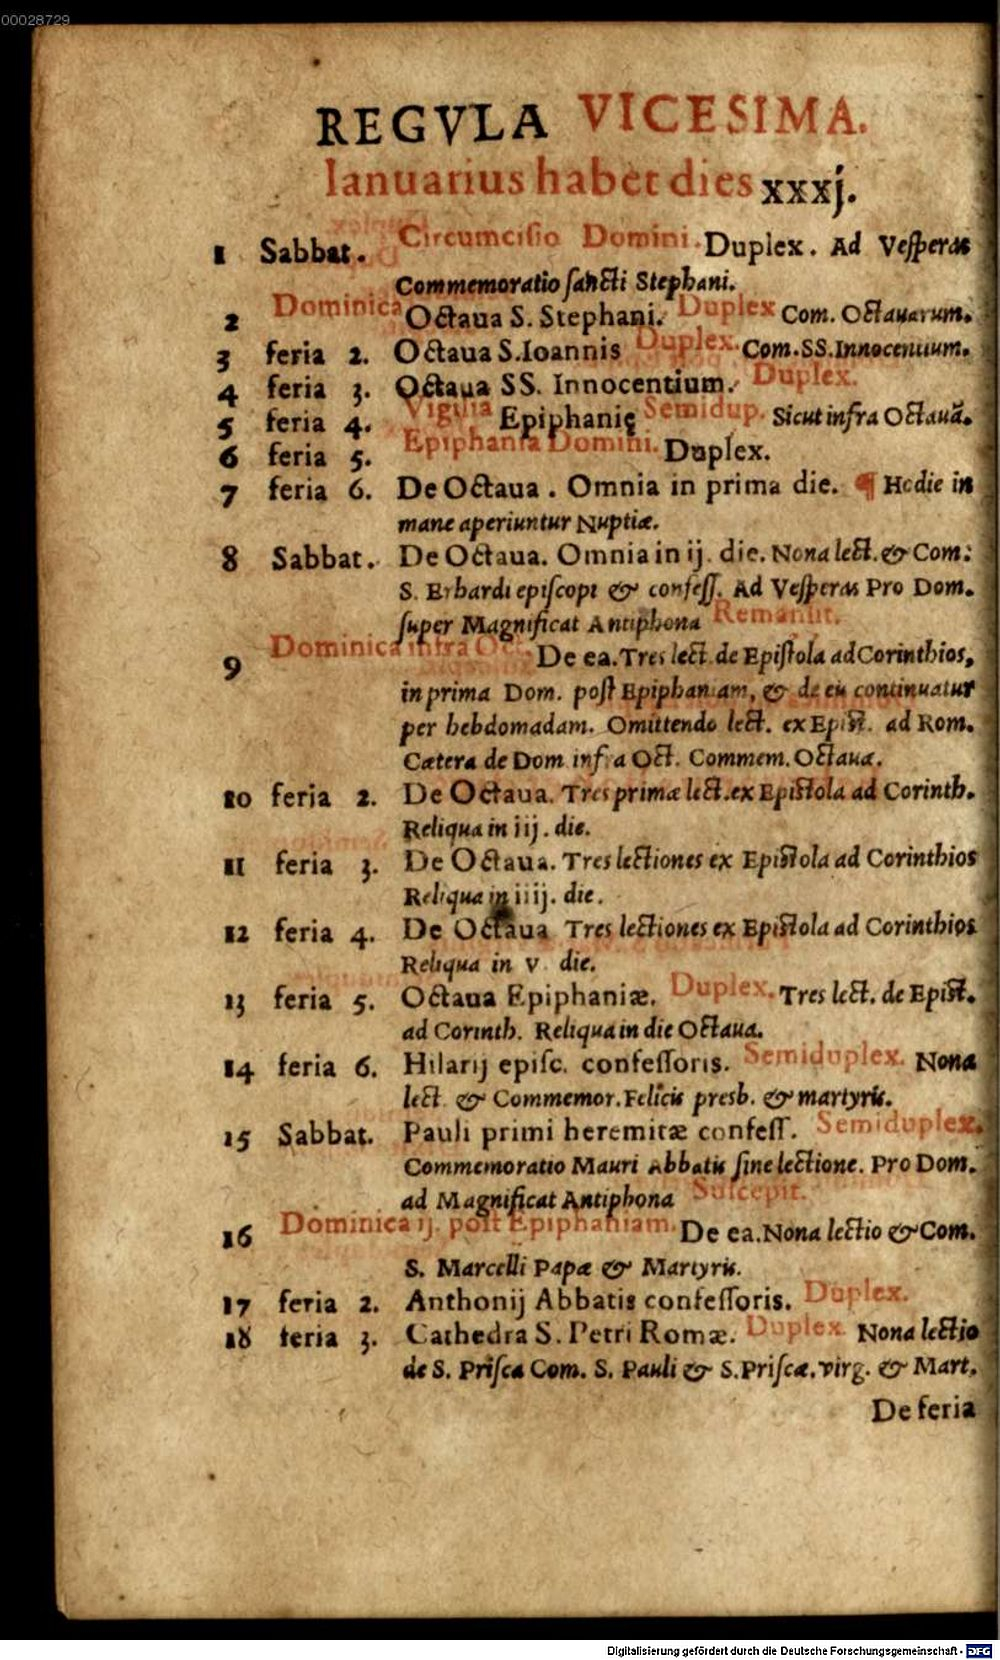 00028729
REGVLA VICESIMA.
Ianuarius habet dies xxxj.
1 Sabbat. Circumcisio Domini. Duplex. Ad Vesperas
Commemoratio sancti Stephani.
2 Dominica Octaua S. Stephani. Duplex Com. Octauarum.
3 feria 2. Octaua S. Ioannis Duplex. Com. SS. Innocentium.
4 feria 3. Octaua SS. Innocentium. Duplex.
5 feria 4. Vigilia Epiphanię Semidup. Sicut infra Octauã.
6 feria 5. Epiphania Domini. Duplex.
7 feria 6. De Octaua. Omnia in prima die. ¶ Hodie in
mane aperiuntur Nuptiæ.
8 Sabbat. De Octaua. Omnia in ij. die. Nona lect. & Com:
S. Erhardi episcopi & confess. Ad Vesperas Pro Dom.
super Magnificat Antiphona Remansit.
9 Dominica infra Oct. De ea. Tres lect. de Epistola ad Corinthios,
in prima Dom. post Epiphaniam, & de eis continuatur
per hebdomadam. Omittendo lect. ex Epist. ad Rom.
Cætera de Dom infra Oct. Commem. Octauæ.
10 feria 2. De Octaua. Tres primæ lect. ex Epistola ad Corinth.
Reliqua in iij. die.
11 feria 3. De Octaua. Tres lectiones ex Epistola ad Corinthios
Reliqua in iiij. die.
12 feria 4. De Octaua Tres lectiones ex Epistola ad Corinthios
Reliqua in v die.
13 feria 5. Octaua Epiphaniæ. Duplex. Tres lect. de Epist.
ad Corinth. Reliqua in die Octaua.
14 feria 6. Hilarij episc. confessoris. Semiduplex. Nona
lect. & Commemor. Felicis presb. & martyris.
15 Sabbat. Pauli primi heremitæ confess. Semiduplex.
Commemoratio Mauri Abbatis sine lectione. Pro Dom.
ad Magnificat Antiphona Suscepit.
16 Dominica ij. post Epiphaniam. De ea. Nona lectio & Com.
S. Marcelli Papæ & Martyris.
17 feria 2. Anthonij Abbatis confessoris. Duplex.
18 feria 3. Cathedra S. Petri Romæ. Duplex Nona lectio
de S. Prisca Com. S. Pauli & S. Priscæ. virg. & Mart.
De feria
Digitalisierung gefördert durch die Deutsche Forschungsgemeinschaft - DFG